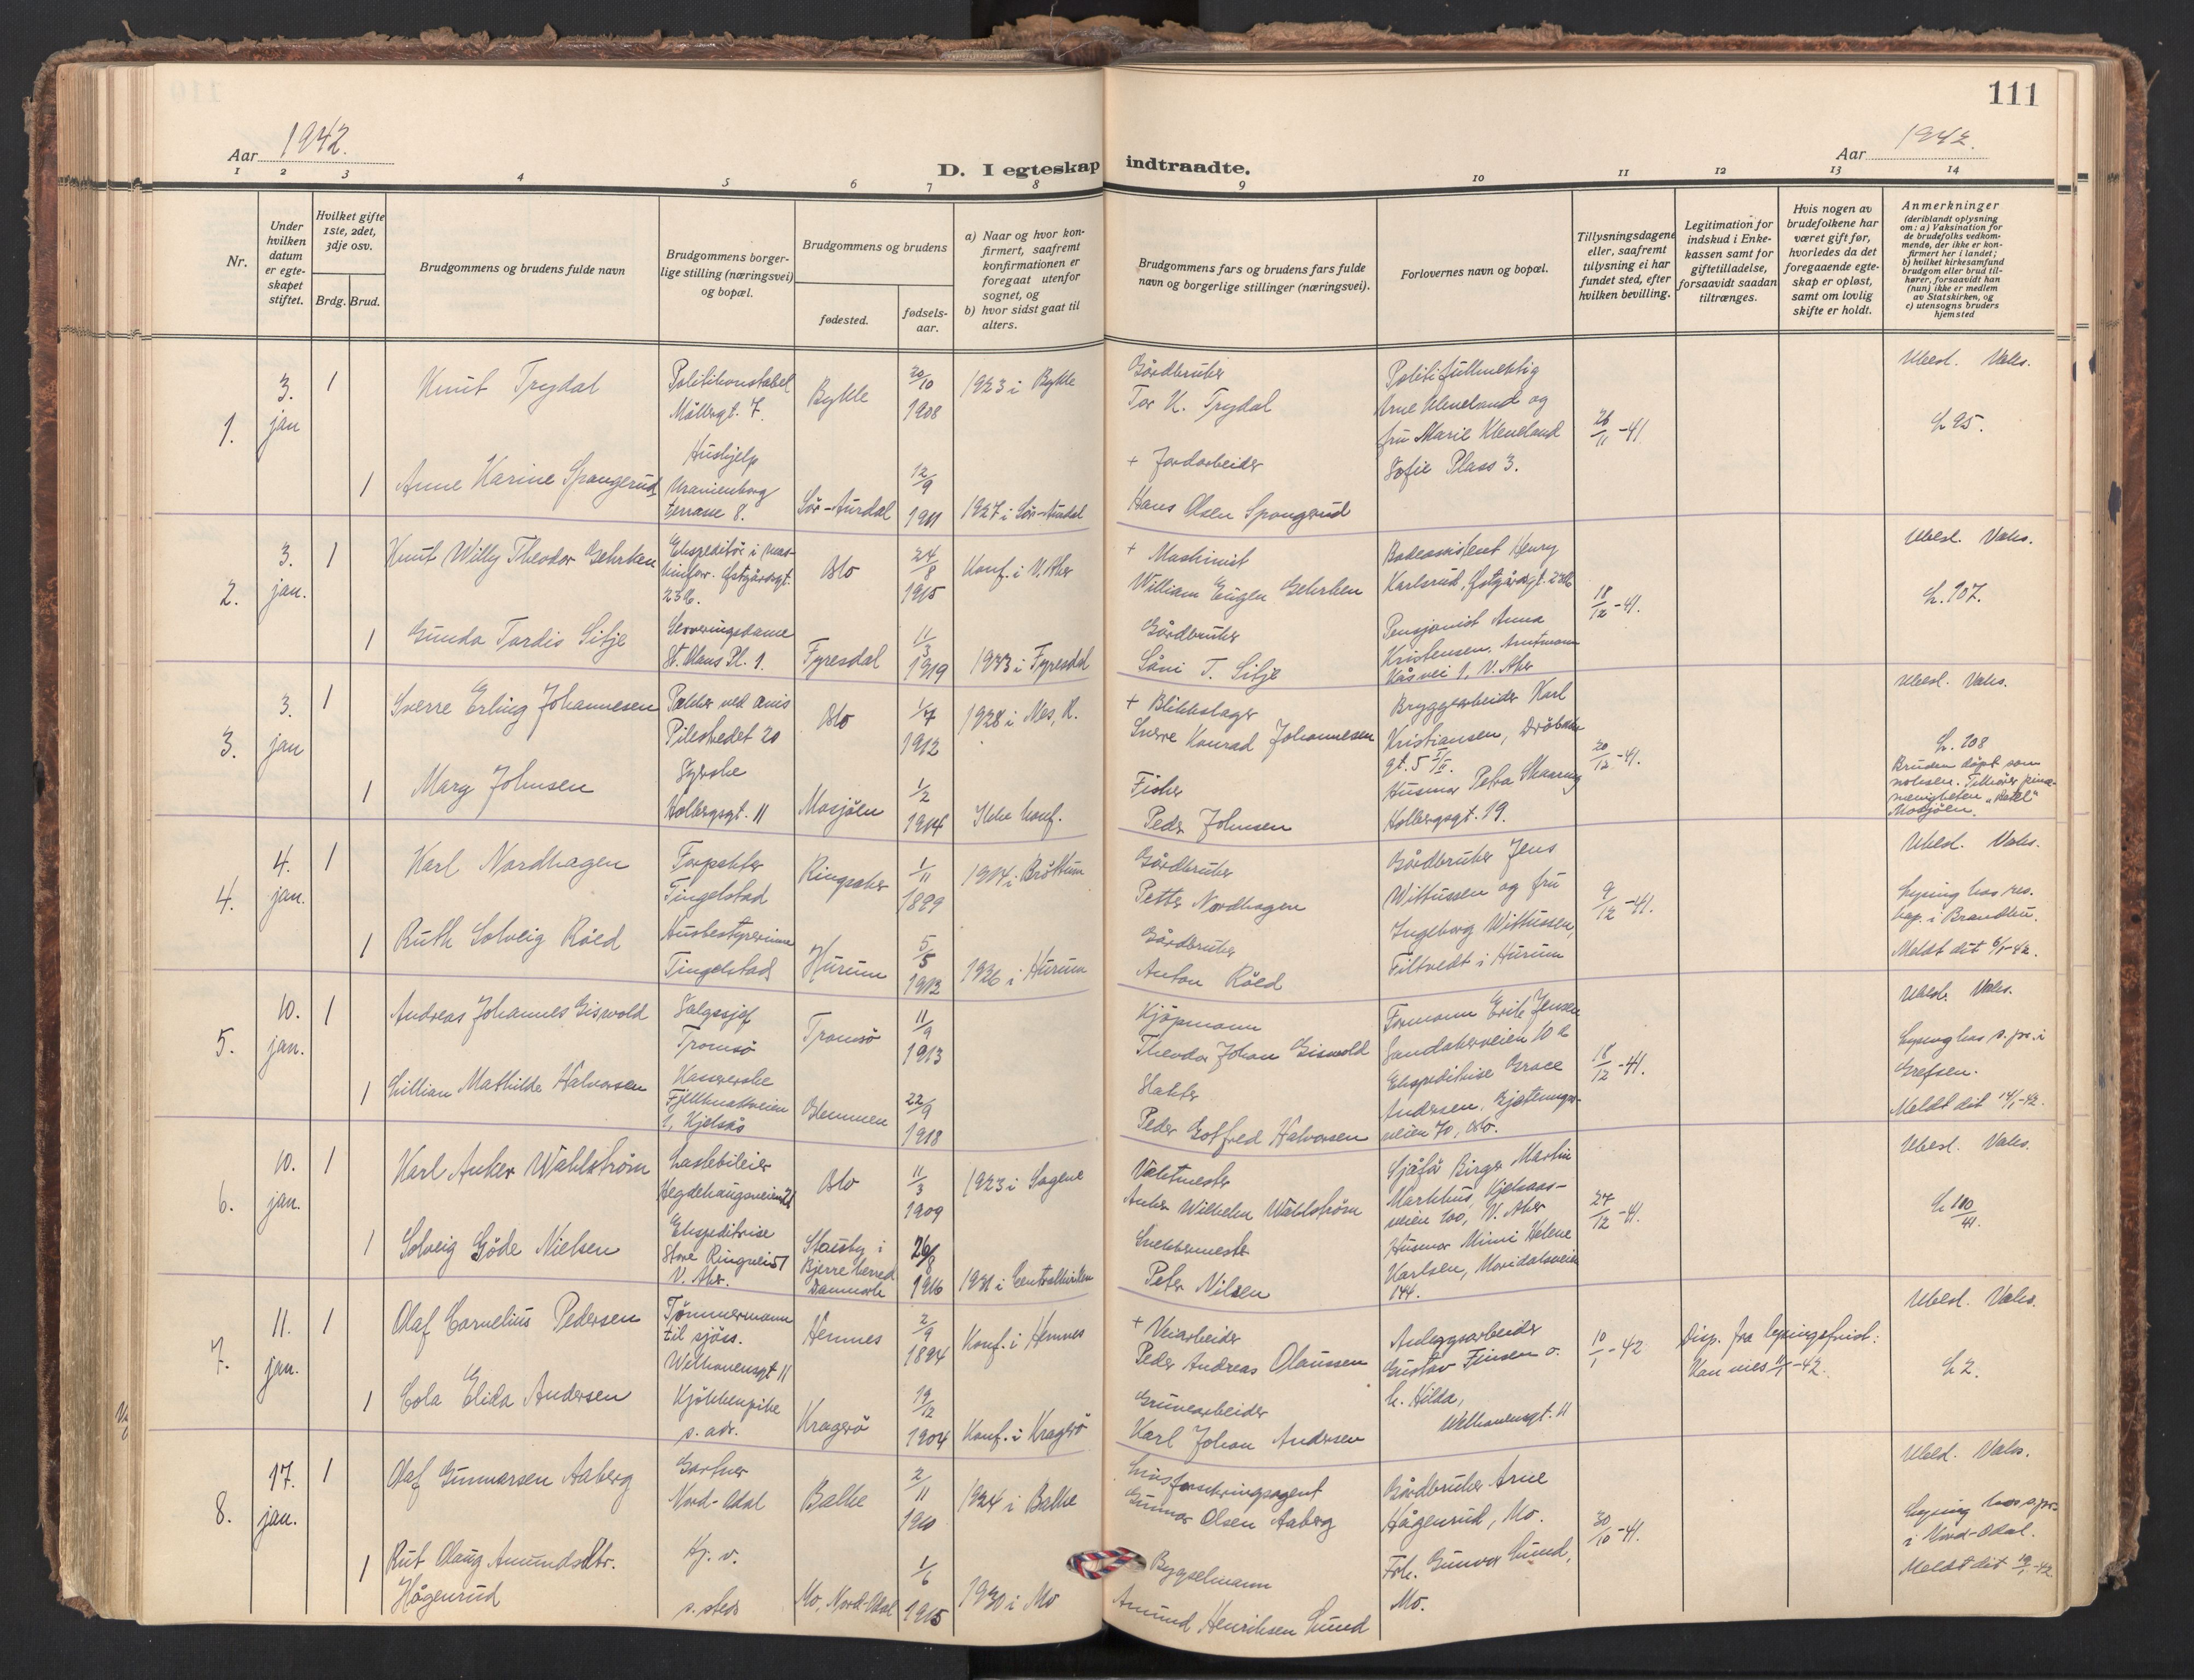 111
Aar 1942.
D. I egteskap indtraadte.
Aar 1942.
1 2 3 4 5 6 7 8 9 10 11 12 13 14
Nr.
Under hvilken datum er egteskapet stiftet.
Hvilket gifte 1ste, 2det, 3dje osv.
Brdg. Brud.
Brudgommens og brudens fulde navn
Brudgommens borgerlige stilling (næringsvei) og bopæl.
Brudgommens og brudens
fødested.
fødselsaar.
a) Naar og hvor konfirmert, saafremt konfirmationen er foregaat utenfor sognet, og
b) hvor sidst gaat til alters.
Brudgommens fars og brudens fars fulde navn og borgerlige stillinger (næringsvei).
Forlovernes navn og bopæl.
Tillysningsdagene eller, saafremt tillysning ei har fundet sted, efter hvilken bevilling.
Legitimation for indskud i Enkekassen samt for giftetilladelse, forsaavidt saadan tiltrænges.
Hvis nogen av brudefolkene har været gift før, hvorledes da det foregaaende egteskap er opløst, samt om lovlig skifte er holdt.
Anmerkninger
(deriblandt oplysning om: a) Vaksination for de brudefolks vedkommende, der ikke er konfirmert her i landet; b) hvilket kirkesamfund brudgom eller brud tilhører, forsaavidt han (hun) ikke er medlem av Statskirken, og c) utensogns bruders hjemsted
1.
3. jan
1
Knut Trydal
Politikonstabel
Møllergt. 7.
Bykle
20/10 1908
1923 i Bykle
Gårdbruker
Tor K. Trydal
Politifullmektig
Arne Kleveland og
fru Marie Kleveland
Sofie Plass 3.
26/11-41.
Ubesl. Vaks.
L 95.
1
Anne Karine Spangerud
Hushjelp
Uranienborg
terrasse 8.
Sør-Aurdal
12/9 1911
1927 i Sør-Aurdal
+ Jordarbeider
Hans Olsen Spangerud
2.
3. jan.
1
Knut Willy Theodor Gehrken
Ekspeditør i
23 b.
Oslo
24/8 1915
Konf. i V. Aker
+ Maskinist
William Eugen Gehrken
Henry
Karlsrud,
18/12-41.
Ubesl. Vaks.
L. 107.
1
Gunda Tordis Silje
Serveringsdame
St. Olavs Pl. 1.
Fyresdal
11/3 1919
1933 i Fyresdal
Gårdbruker
T. Silje
Pensjonist Anna
Kristensen,
V. Aker
3.
3. jan
1
Sverre Erling Johannesen
Pakker ved avis
Pilestredet 20
Oslo
1/7 1912
1928 i Nes, R.
+ Blikkslager
Sverre Konrad Johannesen
Bryggearbeider Karl
Kristiansen, Drøbak
gt. 5
20/12-41.
Ubesl. Vaks.
L. 108
1
Marg Johnsen
Syerske
Holbergsgt. 11
Mosjøen
1/2 1914
Ikke konf.
Fisker
Peder Johnsen
Husmor Petra
Holbergsgt. 19.
Bruden døpt som
voksen. Tilhører pinse-
menigheten
Mosjøen.
4.
4. jan.
1
Karl Nordhagen
Forpakter
Tingelstad
Ringsaker
1/11 1899
1914 i Brøttum
Gårdbruker
Petter Nordhagen
Gårdbruker Jens
Wittussen og fru
Ingeborg Wittussen,
Filtvedt i Hurum
9/12-41.
Ubesl. Vaks.
Lysing hos res.
kap. i Brandbu.
Meldt dit 6/1-42.
1
Ruth Solveig Røed
Husbestyrerinne
Tingelstad
Hurum
5/5 1912
1926 i Hurum
Gårdbruker
Anton Røed
5.
10. jan.
1
Andreas Johannes Giswold
Salgssjef
Tromsø
Tromsø
11/9 1913
Kjøpmann
Theodor Johan Giswold
Formann Erik Jensen
Sandakerveien 10
Ekspeditrise Grace
Andersen, Gjetemyrs-
veien 70, Oslo.
18/12-41.
Ubesl. Vaks.
Lysing hos s. pr. i
Grefsen.
Meldt dit 14/1-42.
1
Lillian Mathilde Halvorsen
Kassererske
Fjellknattveien
1, Kjelsås
Glemmen
22/9 1918
Peder Gotfred Halvorsen
6.
10. jan.
1
Karl Anker Wahlstrøm
Lastebileier
Hegdehaugsveien 21
Oslo
11/3 1909
1923 i Sagene
Vaktmester
Anker Wilhelm Wahlstrøm
Sjåfør Birger Martin
Markhus, Kjelsaas-
veien 100, V. Aker
Husmor Mimi Helene
Karlsen, Maridalsveien
144.
27/12-41.
Ubesl. Vaks.
L 100/41.
1
Solveig Gøde Nielsen
Ekspeditrise
Store Ringvei 51
V. Aker.
Stausby i
Bjerre herred
Danmark
26/8 1916
1931 i Centralkirken
Snekkermester
Peter Nilsen
7.
11. jan.
1
Olaf Cornelius Pedersen
Tømmermann
til sjøss.
Welhavensgt 11
Hemnes
2/9 1894
Konf. i Hemnes
+ Veiarbeider
Peder Andreas Olaussen
Anleggsarbeider
Gustav Finsen o.
h. Hilda,
Welhavensgt. 11
10/1-42
Disp. fra lysingsfrist:
Kan vies 11/1-42.
Ubesl. Vaks.
L 2.
1
Cola Elida Andersen
Kjøkkenpike
s. adr.
Kragerø
19/12 1904
Konf. i Kragerø
Gruvearbeider
Karl Johan Andersen
8.
17. jan.
1
Olaf Gunnarsen Aaberg
Gartner
Nord-Odal
Balke
2/11 1910
1924 i Balke
Livsforsikringsagent
Gunnar Olsen Aaberg
Gårdbruker Arne
Hågenrud, Mo.
Frk. Gunvor Lund,
Mo.
30/10-41.
Ubesl. Vaks.
Lysing hos s.pr.
i Nord-Odal.
Meldt dit 19/1-42
1
Rut Olaug Amundsdtr.
Hågenrud
Kj. v.
s. sted
Mo, Nord-Odal
1/6 1915
1930 i Mo
Bygselmann
Amund Henriksen Lund